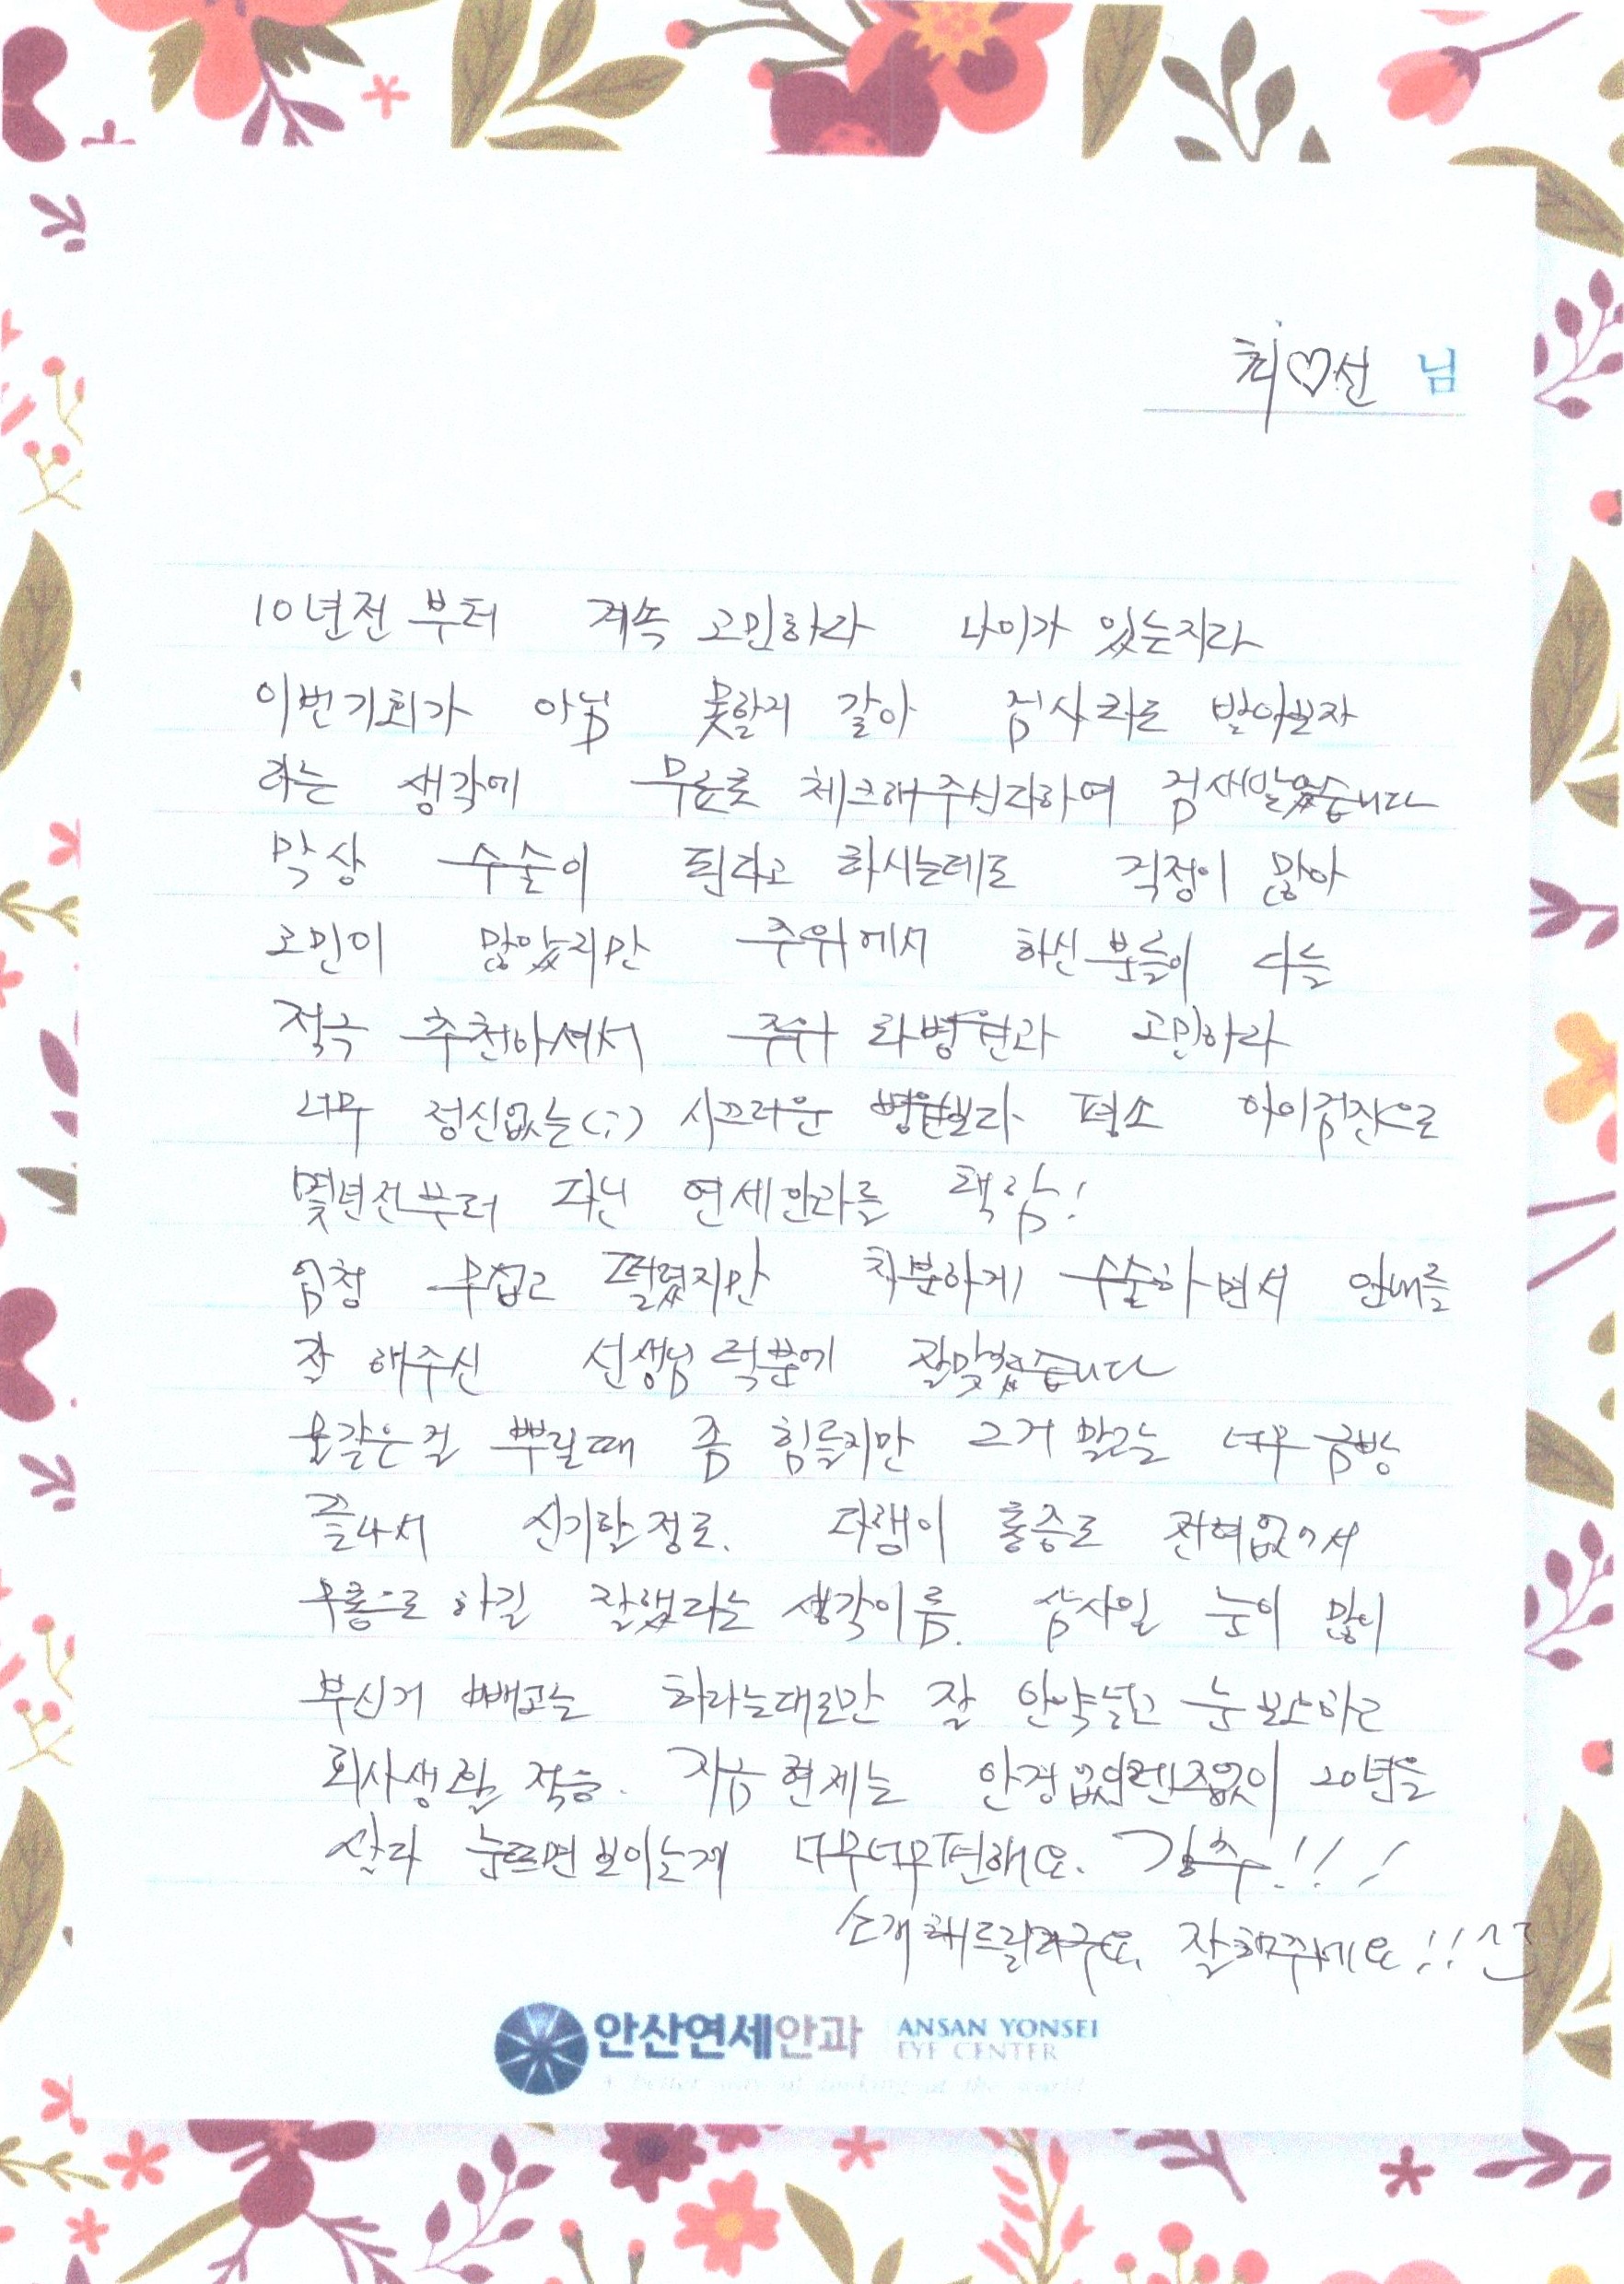 최♡선 님
10년전 부터 계속 고민하다 나이가 있는지라
이번기회가 아님 못할거 같아 검사라도 받아보자
라는 생각에 무료로 체크해주신다하여 검새받었습니다
막상 수술이 된다고 하시는데도 걱정이 많아
고민이 많았지만 주위에서 하신분들이 다들
적극 추천하셔서 주위 타병원과 고민하다
너무 정신없는(;;) 시끄러운 병원보다 평소 아이검진으로
몇년전부터 다닌 연세안과를 택함!
엄청 무섭고 떨렸지만 차분하게 수술하면서 안내를
잘 해주신 선생님 덕분에 잘맞췄습니다
물같은걸 뿌릴때 좀 힘들지만 그거 말고는 너무 금방
끝나서 신기할정도. 다행이 통증도 전혀없어서
무통으로 하길 잘했다는 생각이듬. 삼사일 눈이 많이
부신거 빼고는 하라는대로만 잘 안약넣고 눈보호하고
회사생활 적응. 지금 현재는 안경없인렌즈없이 20년을
살다 눈뜨면 보이는게 너무너무편해요. 강추!!!
소개해드릴라구요. 잘해주세요!!
안산연세안과 ANSAN YONSEI
EYE CENTER